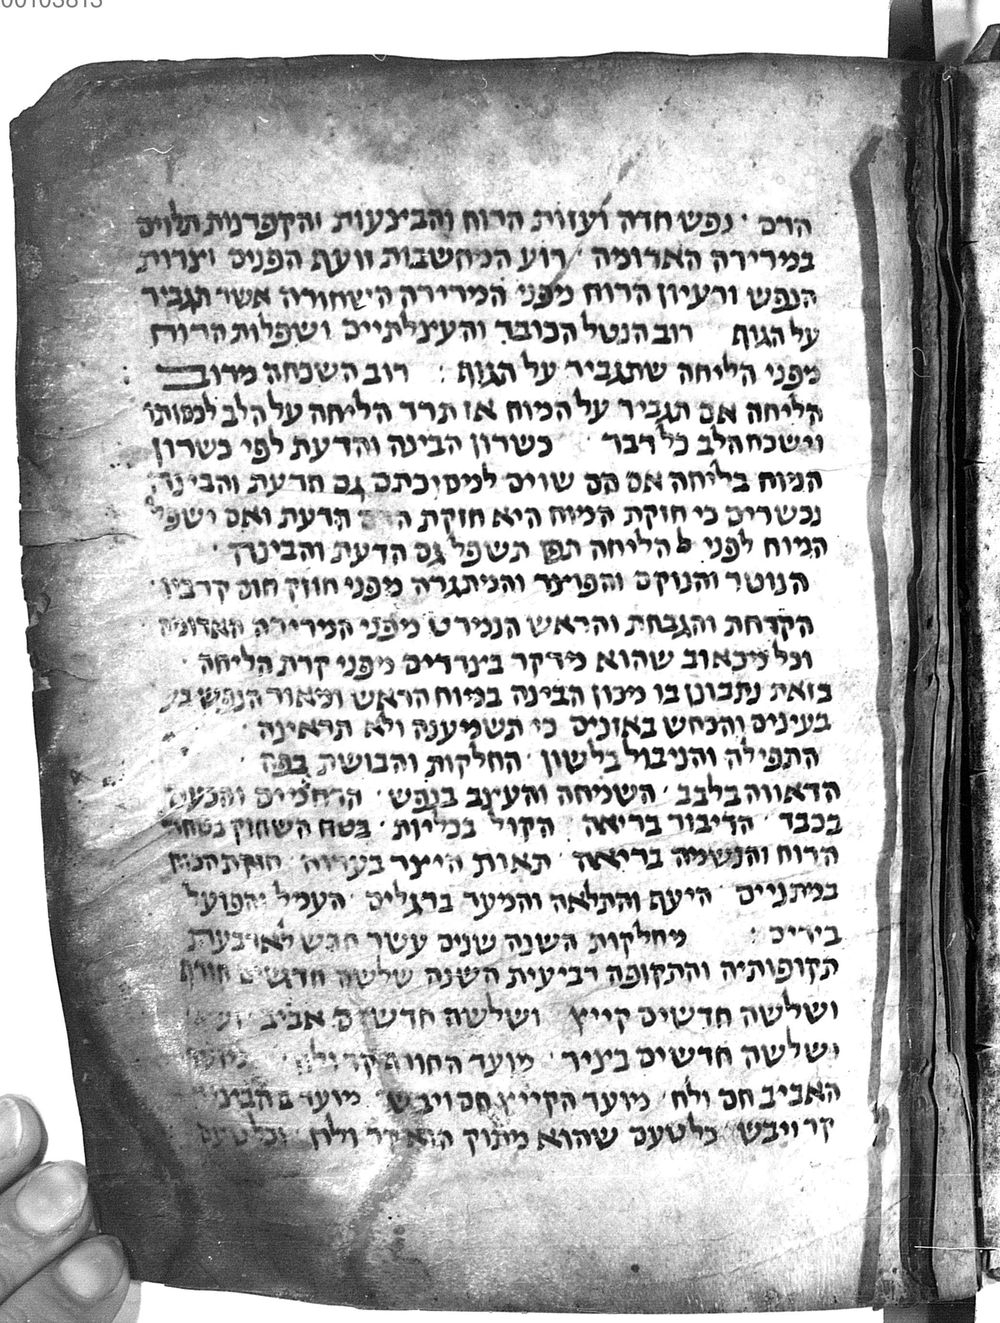 00103813
הדם · נפש חדה ועזות הרוח והביצעות והקפדנות תלוים
במרירה האדומה · רוע המחשבות וזעת הפנים וצרות
הנפש ורעיון הרוח מפני המרירה השחורה אשר תגביר
על הגוף רוב הנטל הכובד והעיצלתיים ושפלות הרוח
מפני הליחה שתגביר על הגוף : רוב השכחה מרוב
הליחה אם תגביר על המוח אז תרד הליחה על הלב לכסותו
וישכח הלב כל דבר · כשרון הבינה והדעת לפי כשרון
המוח בליחה אם הם שווים למסיכתם גם הדעת והבינה
נכשרים כי חזקת המוח היא חזקת הדעת ואם ישפל
המוח לפני הליחה תשפל גם הדעת והבינה ·
הנוטר והנוקם והפוצר והמתגרה מפני חוזק חום קרביו ·
הקדחת והגבחת והראש הנמרט מפני המרירה האדומה
וכל מכאוב שהוא מדקר בצדדים מפני קרת הליחה ·
בזאת נתבונן בו מכון הבינה במוח הראש ומאור הנפש
בעינים והנחש באזנים כי תשמענה ולא תראינה ·
התפילה והניבול בלשון · החלקות והבושת בפה
הדאווה בלבב · השמחה והעצב בנפש · הרחמים והכעס
בכבד · הדיבור בריאה הקול בכליות · בטח השחוק בטחול
הרוח והנשמה בריאה · תאות היצר בערוה · חזקת הכוח
במתניים · היעף והתלאה והמעד ברגלים · העמל והפועל
בידים : מחלקות השנה שנים עשר חדש לארבעת
תקופותיה והתקופה רביעית השנה שלשה חדשים חורף
ושלשה חדשים קייץ ושלשה חדשים אביב
ושלשה חדשים בציר · מועד החורף קר ולח ·
האביב חם ולח · מועד הקייץ חם ויבש · מועד הבציר
קר ויבש · כל טעם שהוא מתוק הוא קר ולח · וכל טעם